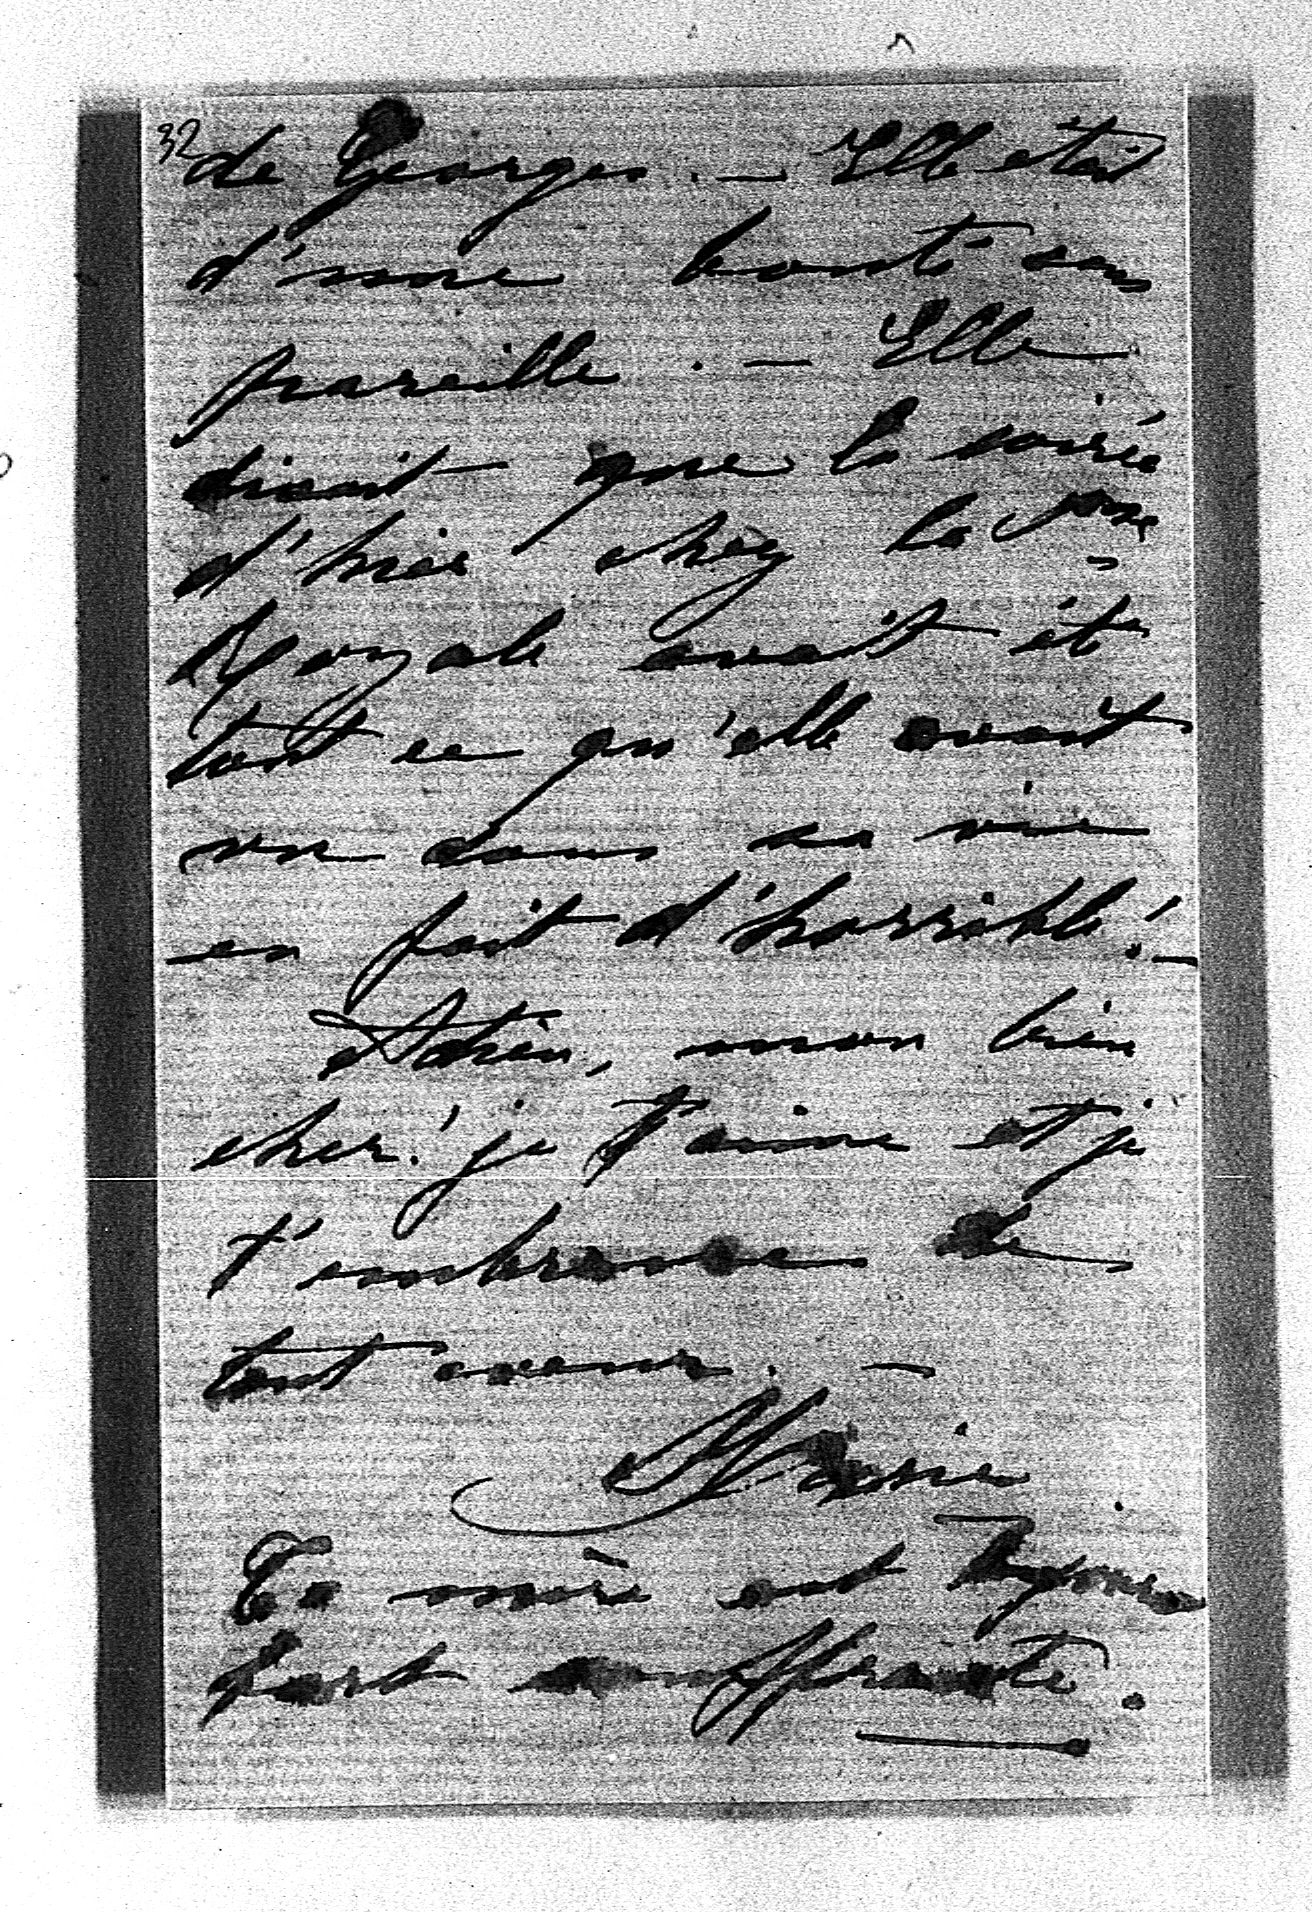 32
de Georges. — Elle était
d'une bonté sans
pareille. — Elle
disait que la soirée
d'hier chez la Psse
Royale avait été
tout ce qu'elle avait
vu dans sa vie
en fait d'horrible! —
Adieu, mon bien
cher! je t'aime et je
t'embrasse de
tout coeur. —
Marie
Ta mère est toujours
fort souffrante.